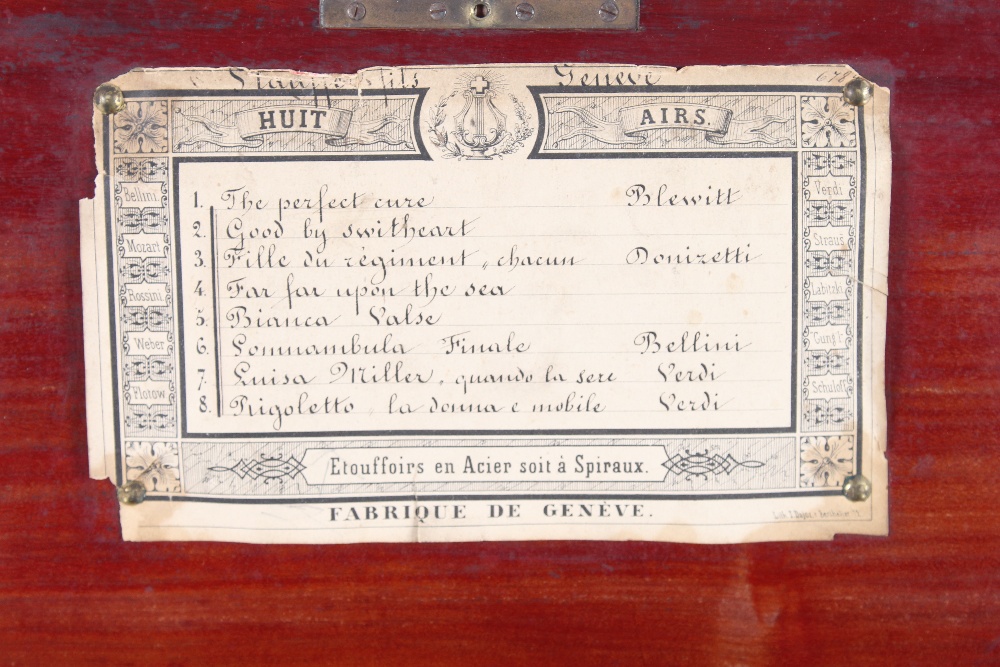 fils Genève 678
HUIT AIRS.
1. The perfect cure Blewitt
2. Good by switheart
3. Fille du régiment, chacun Donizetti
4. Far far upon the sea
5. Bianca Valse
6. Somnambula Finale Bellini
7. Luisa Miller, quando la sere Verdi
8. Rigoletto, la donna e mobile Verdi
Bellini.
Mozart
Rossini
Weber
Flotow
Verdi
Straus
Labitzki
Gung'l
Schuloff
Etouffoirs en Acier soit à Spiraux.
FABRIQUE DE GENÈVE.